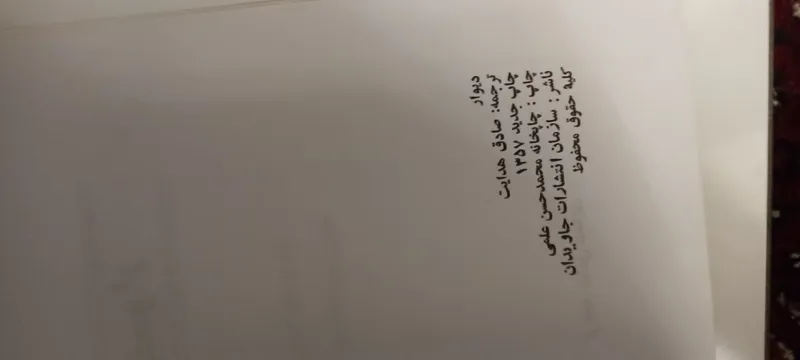 دیوار
ترجمه: صادق هدایت
چاپ جدید ۱۳۵۷
چاپ: چاپخانه محمدحسن علمی
ناشر: سازمان انتشارات جاویدان
کلیهٔ حقوق محفوظ